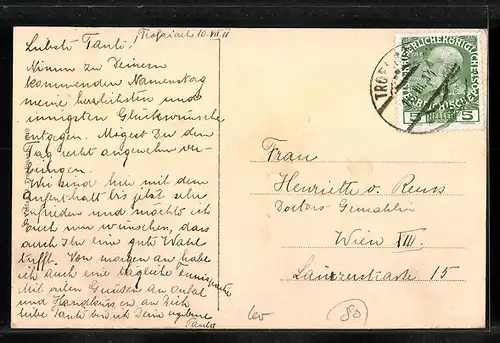 Trofaiach 10.VII.11
Liebste Tante!
Nimm zu Deinem
kommenden Namenstag
meine herzlichsten und
innigsten Glückwünsche
entgegen. Mögest Du den
Tag recht angenehm ver-
bringen.
Wir sind hier mit dem
Aufenthalt bis jetzt sehr
zufrieden und möchte ich
Euch nur wünschen, dass
auch Ihr eine gute Wahl
trefft. Von morgen an habe
ich auch eine tägliche Tennispartie
Mit vielen Grüssen an Onkel
und Handkuss an Dich
liebe Tante bin ich Deine
Paula
KAISERLICHEKÖNIGLICHE
ÖSTERREICHISCHE POST
5 HELLER 5
Frau
Henriette v. Reuss
Doctors Gemahlin
Wien XIII.
Lainzerstrasse 15
80